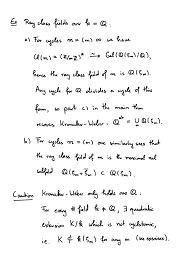 Ex Ray class fields over k = Q.
a) For cycles m = (m)·∞ we have
Cl(m) = (Z/mZ)* ≅ Gal(Q(ζm)/Q),
hence the ray class field of m is Q(ζm).
Any cycle for Q divides a cycle of this
form, so part c) in the main thm
recovers Kronecker-Weber: Q^ab = ∪ Q(ζm).
b) For cycles m = (m) one similarly sees that
the ray class field of m is the maximal real
subfield Q(ζm + ζ̄m) ⊂ Q(ζm).
Caution Kronecker-Weber only holds over Q:
For every # field k ≠ Q, ∃ quadratic
extension K/k which is not cyclotomic,
i.e. K ⊄ k(ζm) for any m (see exercises).